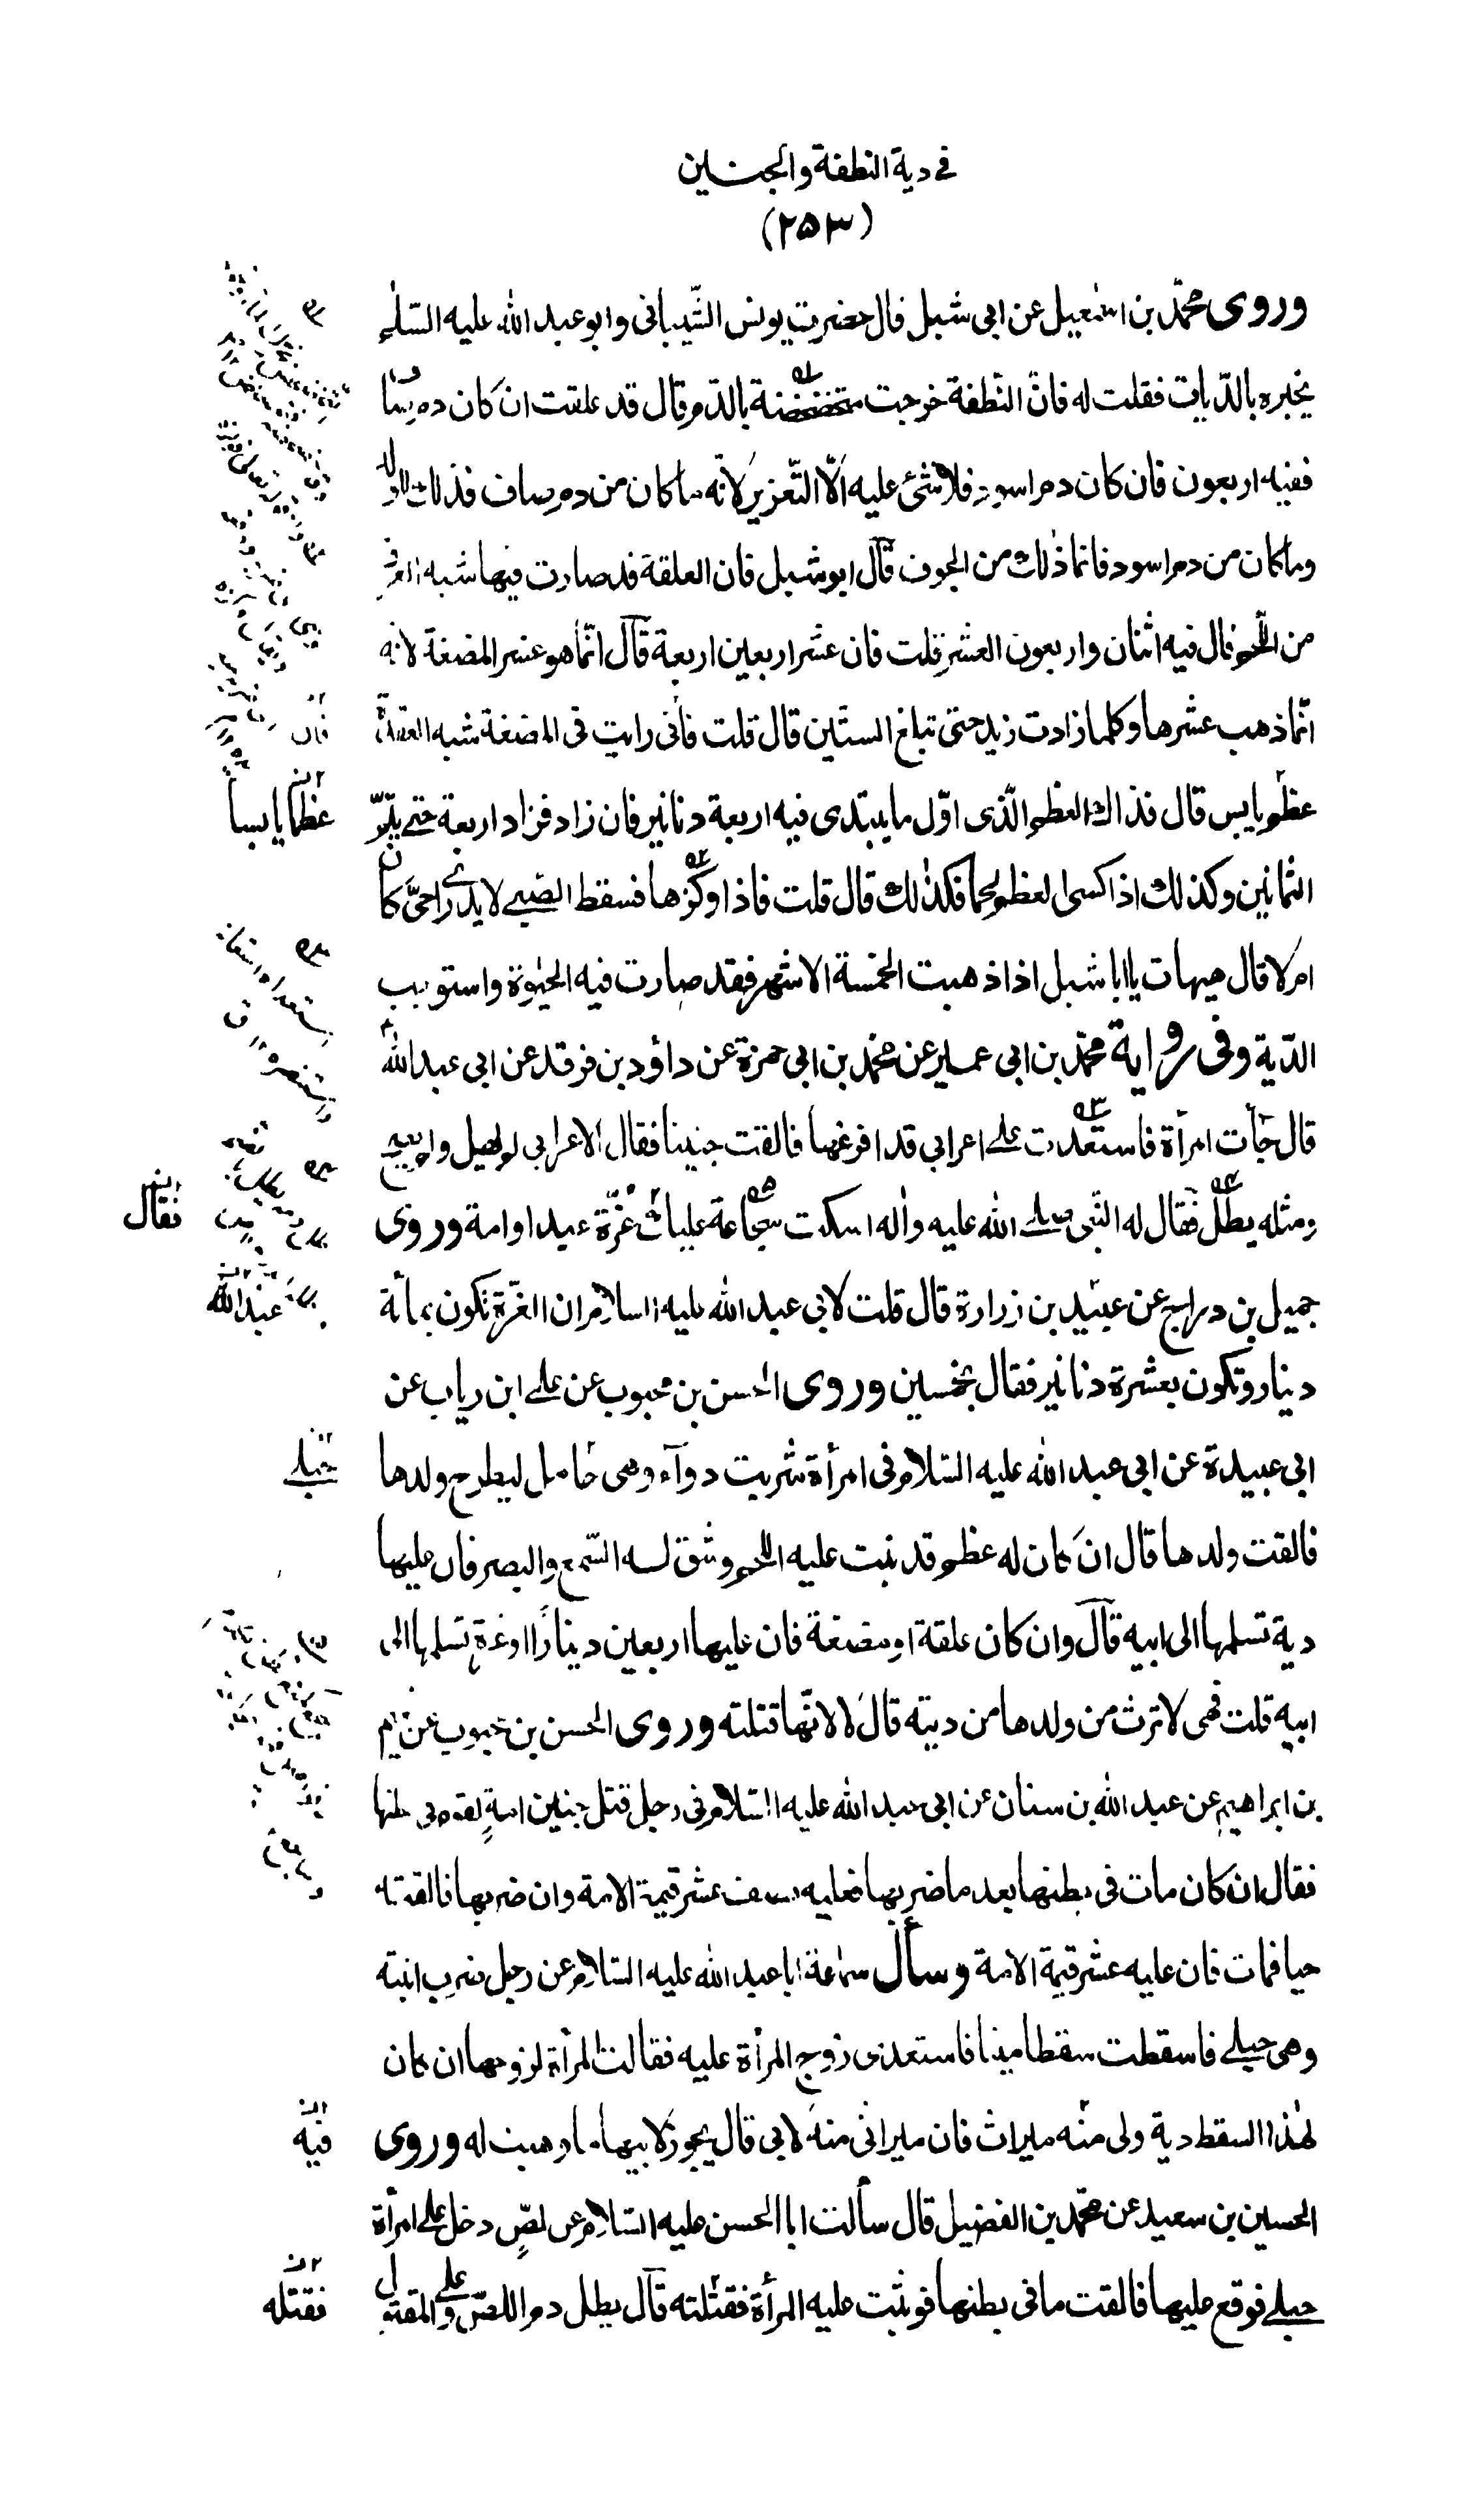 في دية النطفة والجنين
(٢٥٣)
وروى محمّد بن اسمعيل عن ابى شبل قال حضرت يونس الشّيبانى وابو عبد الله عليه السّلم
يخبره بالدّيات فقلت له فانّ النّطفة خرجت متخضخضة بالدّم قال قد علقت ان كان دم صافيا
ففيه اربعون فان كان دم اسود فلا شئ عليه الّا التّعزير لانّه ما كان من دم صاف فذلك للولد
وما كان من دم اسود فانما ذلك من الجوف قال ابو شبل فان العلقة قد صارت فيها شبه العرق
من اللّحم قال فيه اثنان واربعون العشر قلت فان عشر اربعين اربعة قال انّما هو عشر المضغة لانه
انّما ذهب عشرها وكلما زادت زيد حتى تبلغ الستّين قال قلت فانى رايت فى المضغة شبه العقدة
عظم يابس قال فذاك العظم الّذى اوّل ما يبتدى فيه اربعة دنانير فان زاد فزاد اربعة حتى يتمّ
عظما يابسا
الثمانين وكذلك اذا كسى العظم لحما فكذلك قال قلت فاذا وكزها فسقط الصّبى لا يدرى احىّ كان
ام لا قال هيهات يا ابا شبل اذا ذهبت الخمسة الاشهر فقد صارت فيه الحيوة واستوجب
الدّية وفى رواية محمّد بن ابى عمير عن محمّد بن ابى حمزة عن داود بن فرقد عن ابى عبد الله
قال جأت امرأة فاستعدت على اعرابى قد افزعها فالقت جنينا فقال الاعرابى لم يهل ولم يصح
ومثله يطلّ فقال له النّبى صلى الله عليه واله اسكت سجاعة عليك غرّة عبد او امة وروى
فقال
جميل بن درّاج عن عبيد بن زرارة قال قلت لابى عبد الله عليه السلام ان الغرّة تكون بمأة
عبد الله
دينار وتكون بعشرة دنانير فقال بخمسين وروى الحسن بن محبوب عن على ابن رياب عن
ابى عبيدة عن ابى عبد الله عليه السّلام فى امرأة شربت دوآء وهى حامل ليطرح ولدها
حبلى
فالقت ولدها قال ان كان له عظم قد نبت عليه اللحم وشق له السّمع والبصر فان عليها
دية تسلمها الى ابيه قال وان كان علقة او مضغة فان عليها اربعين دينارا او غرة تسلمها الى
ابيه قلت فهى لا ترث من ولدها من ديته قال لا لانّها قتلته وروى الحسن بن محبوب عن نعيم
بن ابراهيم عن عبد الله بن سنان عن ابى عبد الله عليه السّلام فى رجل قتل جنين امة لقوم فى بطنها
فقال ان كان مات فى بطنها بعد ما ضربها فعليه نصف عشر قيمة الامة وان ضربها فالقته
حيا فمات فان عليه عشر قيمة الامة وسأل سماعة ابا عبد الله عليه السّلام عن رجل ضرب ابنته
وهى حبلى فاسقطت سقطا ميتا فاستعدى زوج المرأة عليه فقالت المرأة لزوجها ان كان
لهذا السقط دية ولى منه ميراث فان ميراثى منه لابى قال يجوز لابيها ما وهبت له وروى
فيه
الحسين بن سعيد عن محمّد بن الفضيل قال سألت ابا الحسن عليه السّلام عن لصّ دخل على امرأة
حبلى فوقع عليها فالقت ما فى بطنها فوثبت عليه المرأة فقتلته قال يطل دم اللصّ وعلى المقتول
فقتله